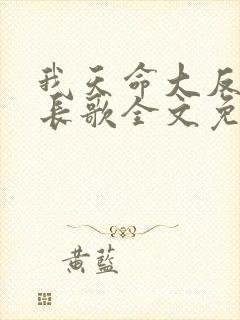 我天命大反
长歌全文免
黄蓝